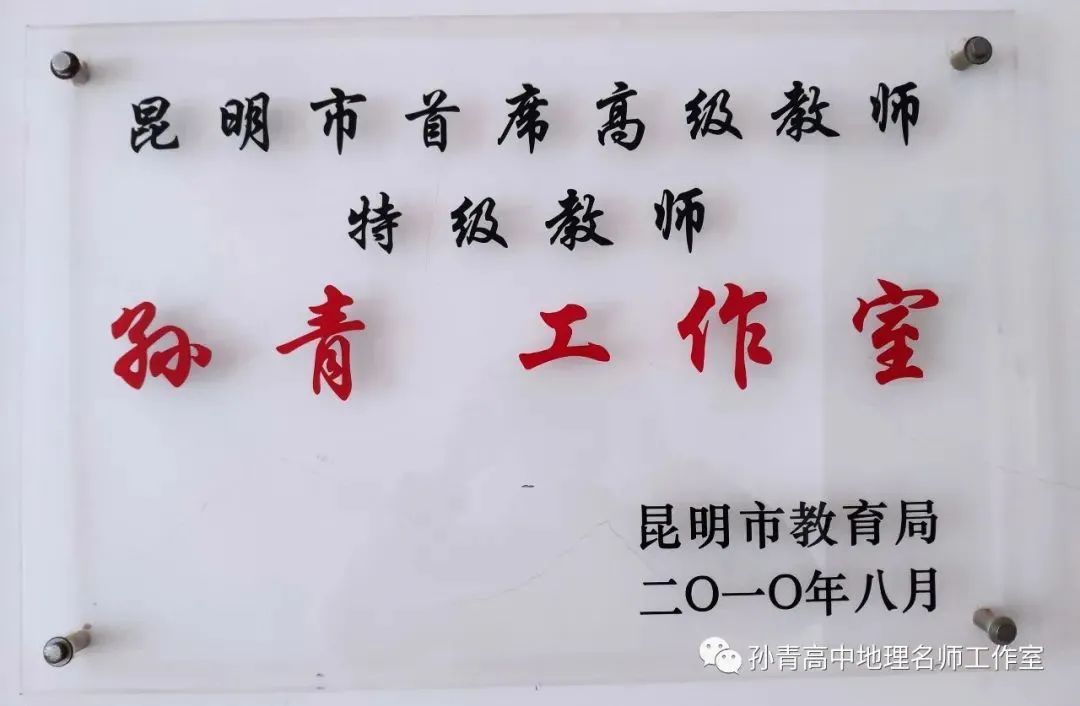 昆明市首席高级教师
特级教师
孙青 工作室
昆明市教育局
二〇一〇年八月
孙青高中地理名师工作室